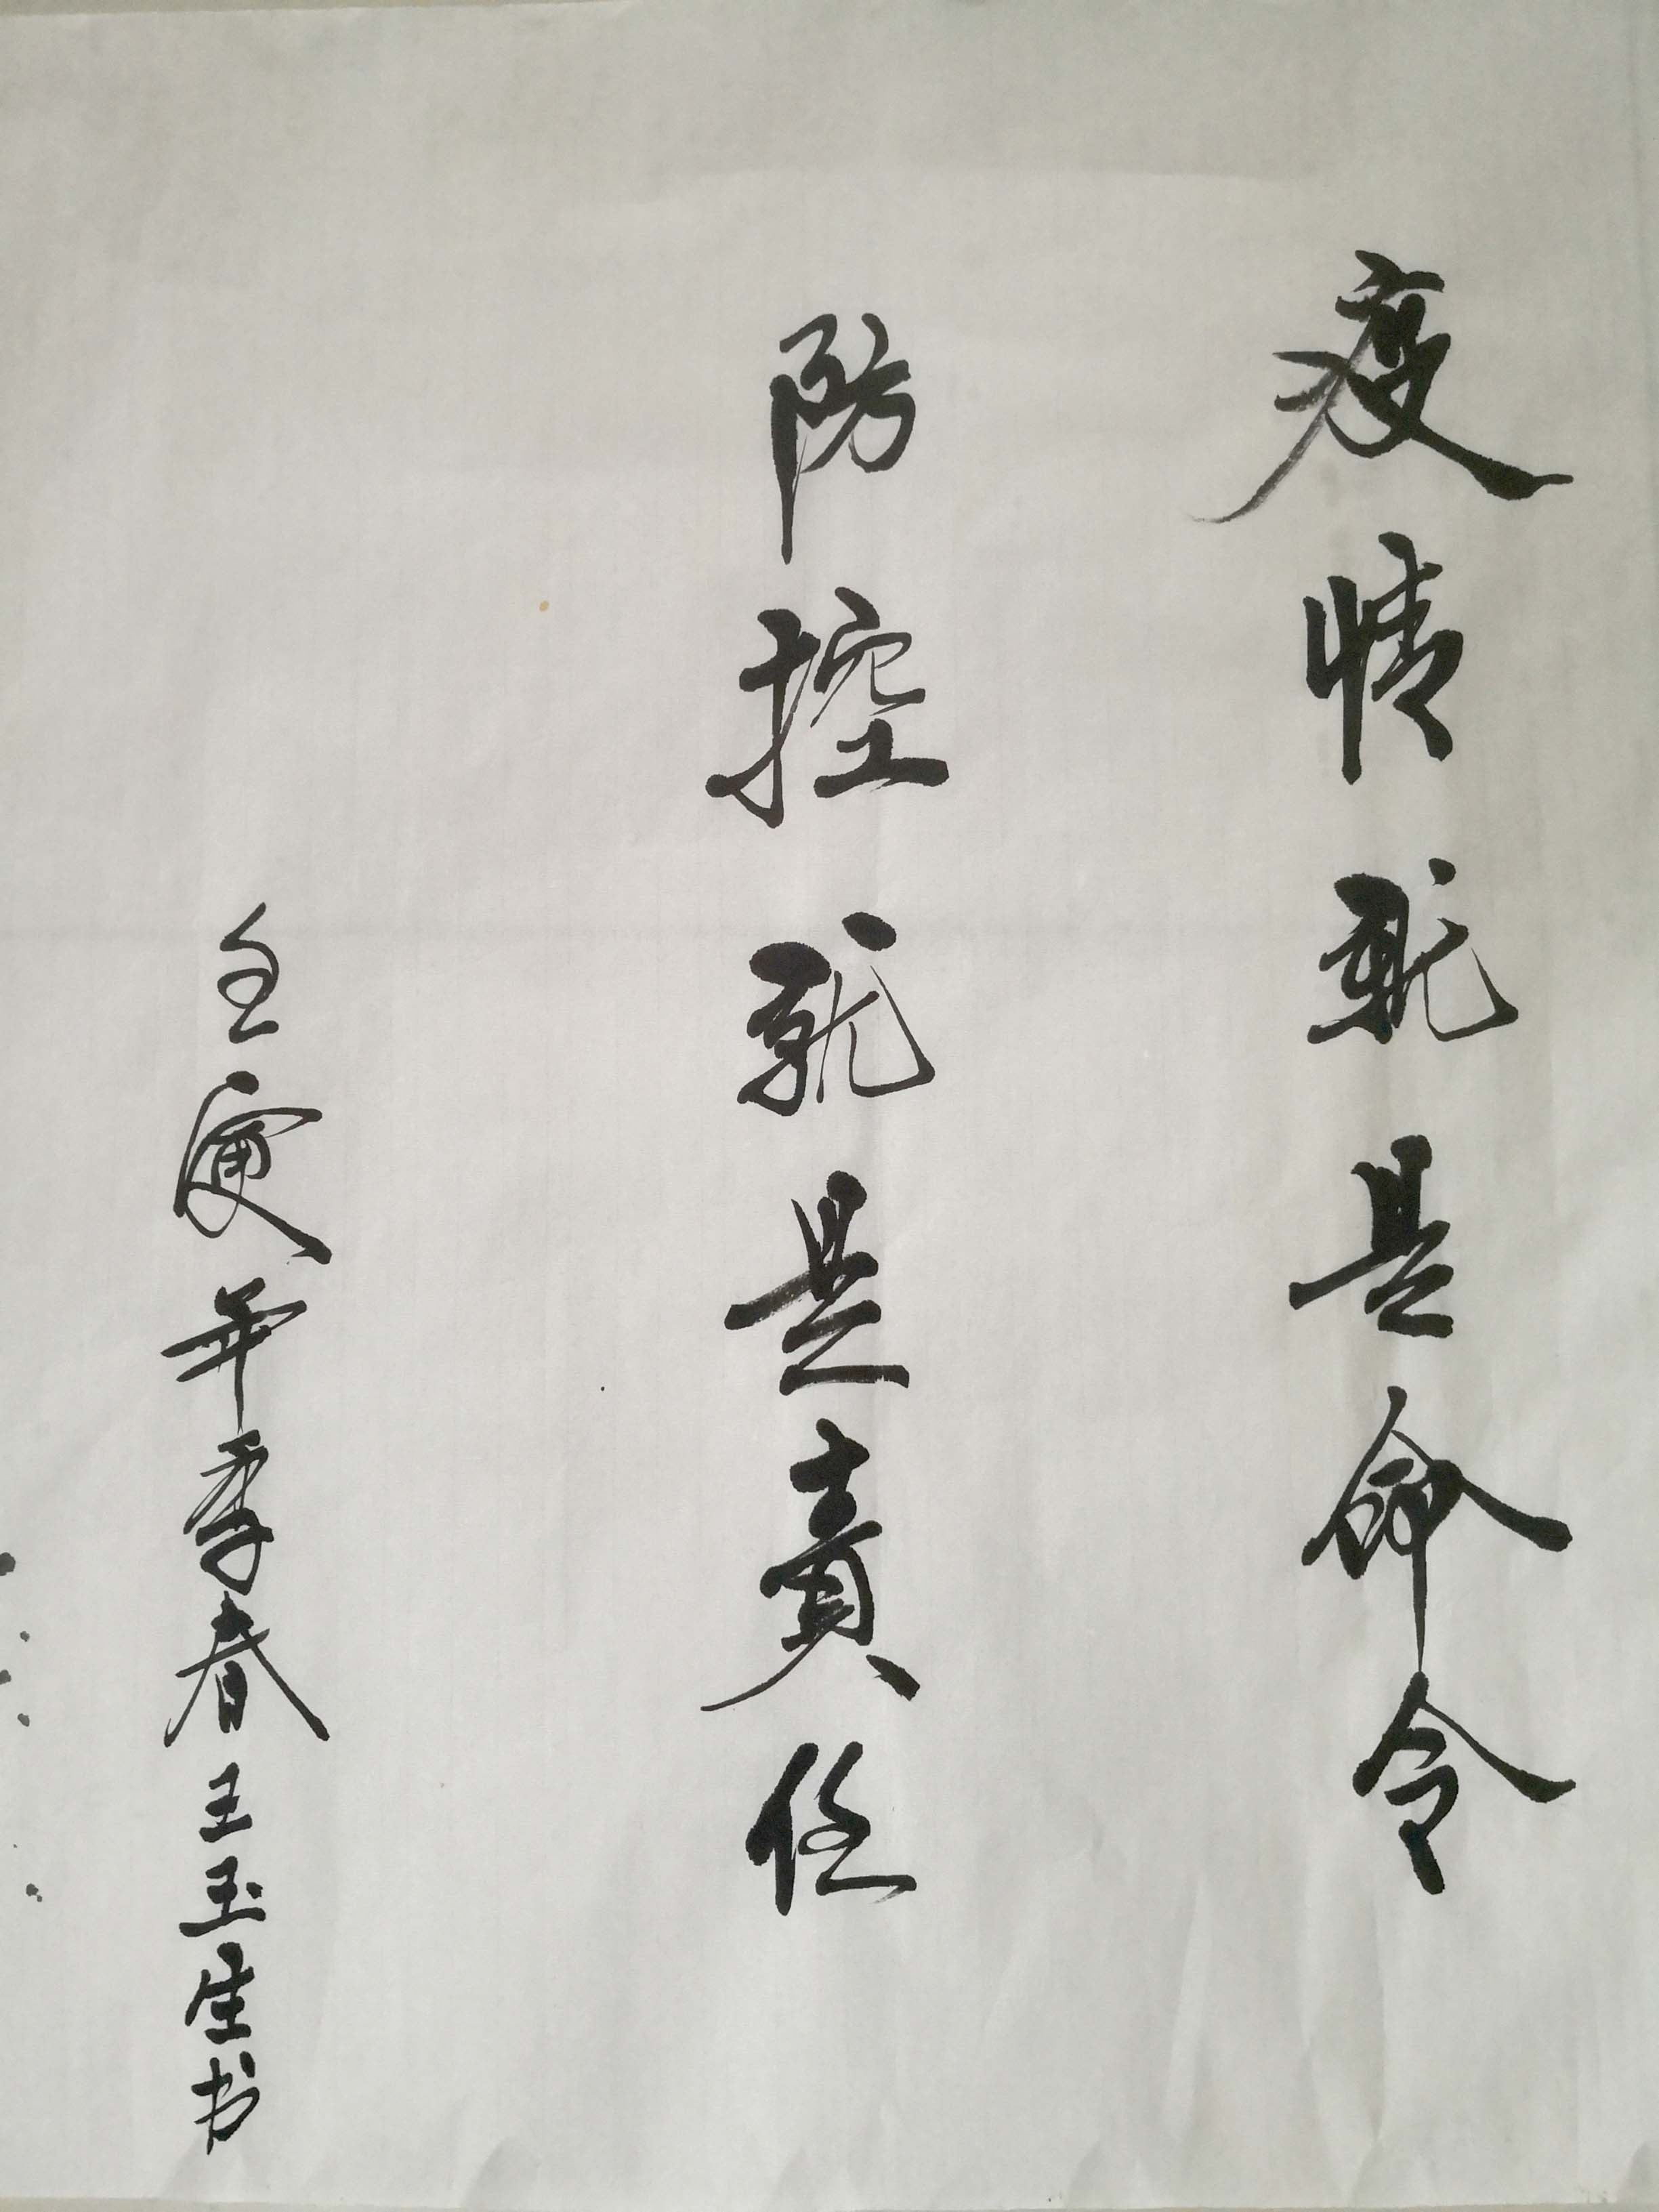 疫情就是命令
防控就是責任
壬寅年季春王玉生书